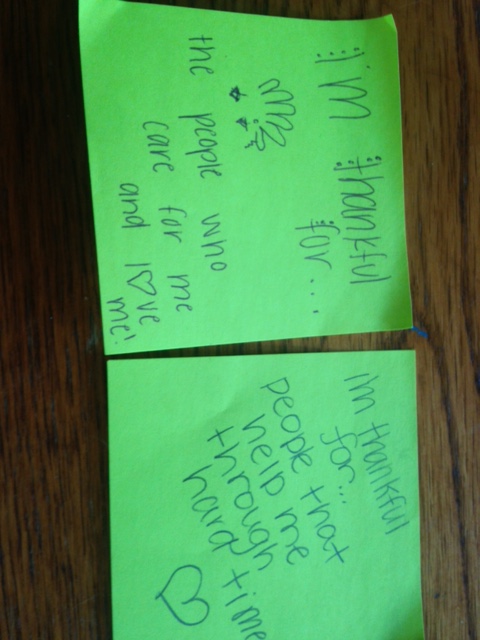 I'm thankful
for...
the people who
care for me
and love
me!
I'm thankful
for...
people that
help me
through
hard time